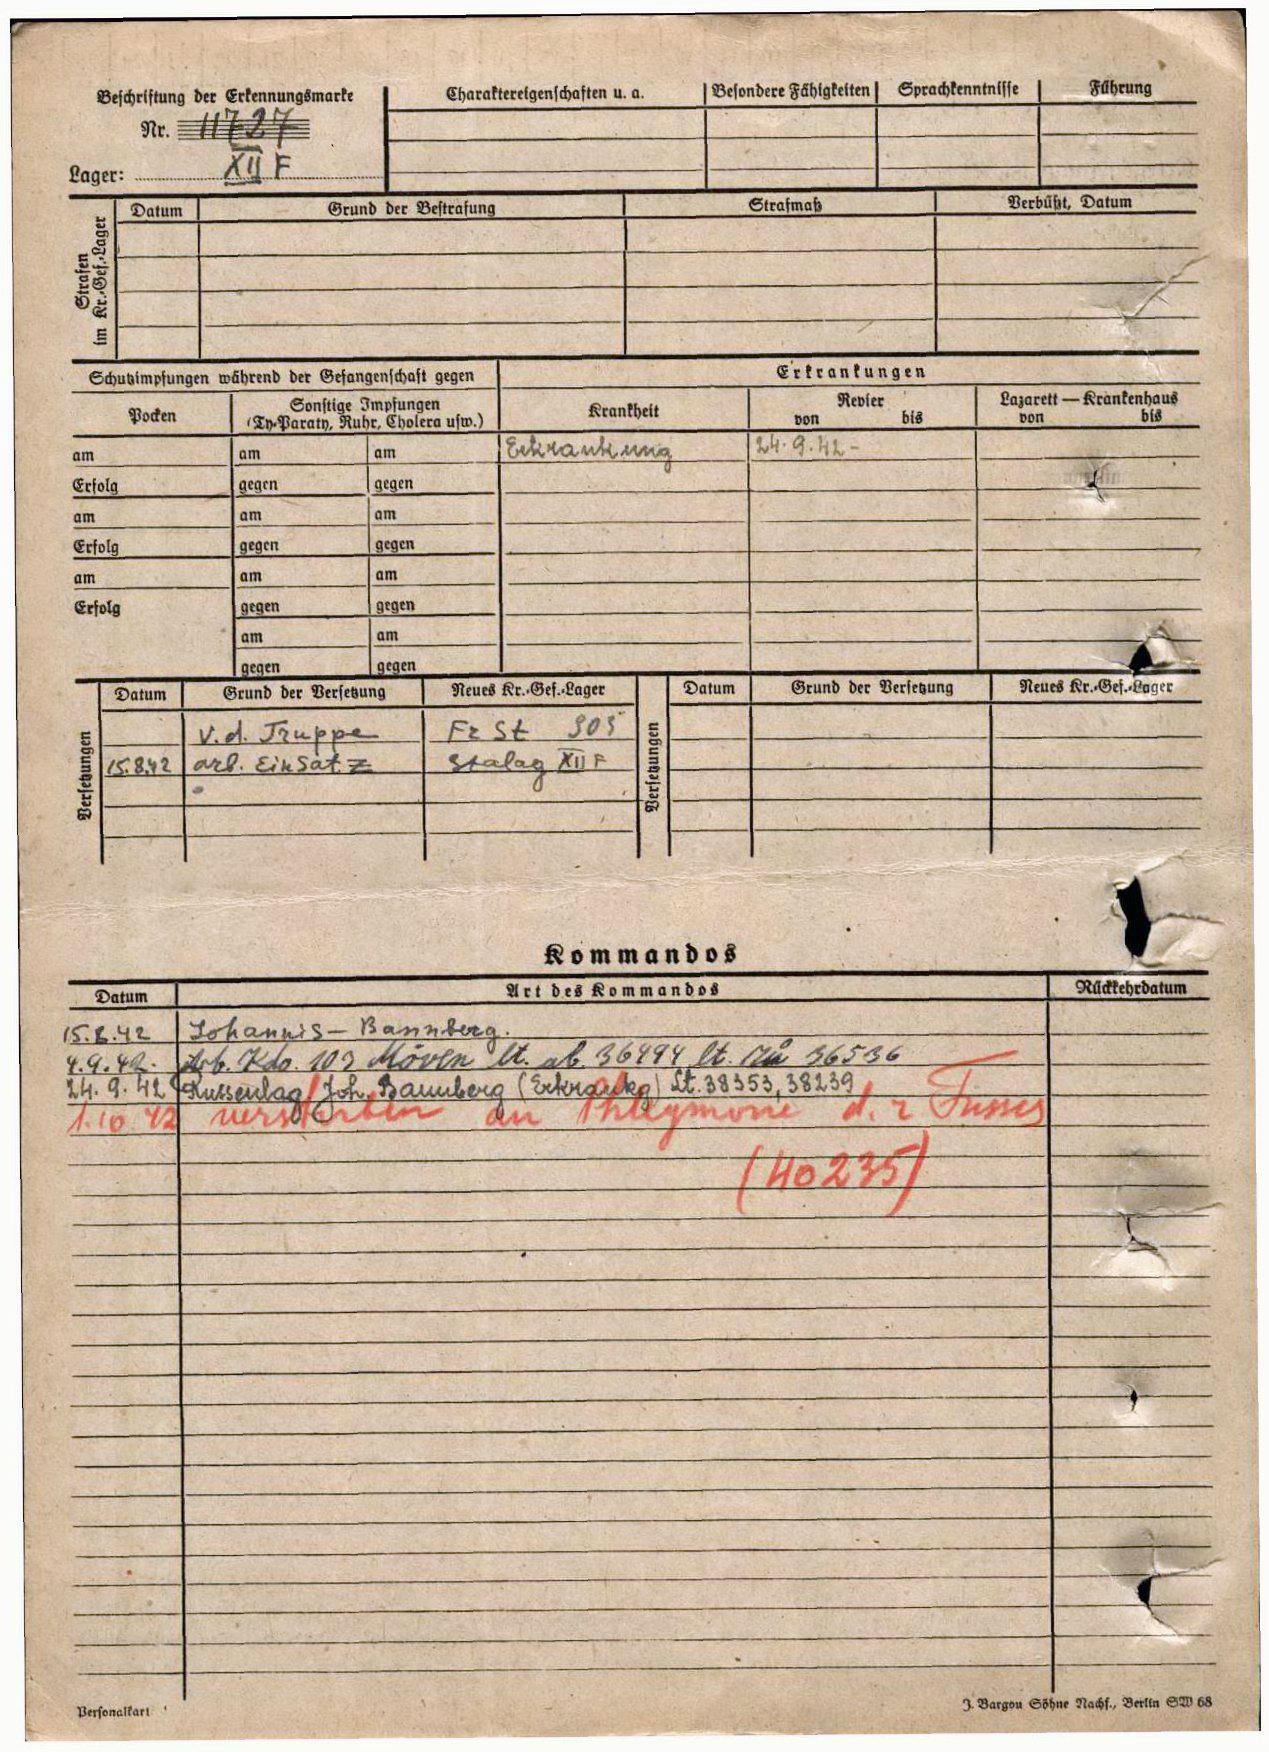 Beschriftung der Erkennungsmarke
Nr. 11727
Lager: XII F
Charaktereigenschaften u. a.
Besondere Fähigkeiten
Sprachkenntnisse
Führung
Strafen im Kr.-Gef.-Lager
Datum
Grund der Bestrafung
Strafmaß
Verbüßt, Datum
Schutzimpfungen während der Gefangenschaft gegen
Erkrankungen
Pocken
Sonstige Impfungen
(Ty.-Paraty, Ruhr, Cholera usw.)
Krankheit
Revier
von bis
Lazarett — Krankenhaus
von bis
am am am Erkrankung 24.9.42-
Erfolg gegen gegen
am am am
Erfolg gegen gegen
am am am
Erfolg gegen gegen
am am
gegen gegen
Versetzungen
Datum Grund der Versetzung Neues Kr.-Gef.-Lager
v. d. Truppe Fr St 305
15.8.42 arb. Einsatz Stalag XII F
Versetzungen
Datum Grund der Versetzung Neues Kr.-Gef.-Lager
Kommandos
Datum Art des Kommandos Rückkehrdatum
15.8.42 Johannis - Bannberg.
4.9.42. Arb. Kdo. 103 Möven lt. ab. 36494 lt. 36536
24.9.42 Russenlag Joh. Bannberg (Erkrankg) Lt. 38353, 38239
1.10.42 verstorben an Phlegmone d. r Fusses
(40235)
Personalkart
J. Bargou Söhne Nachf., Berlin SW 68